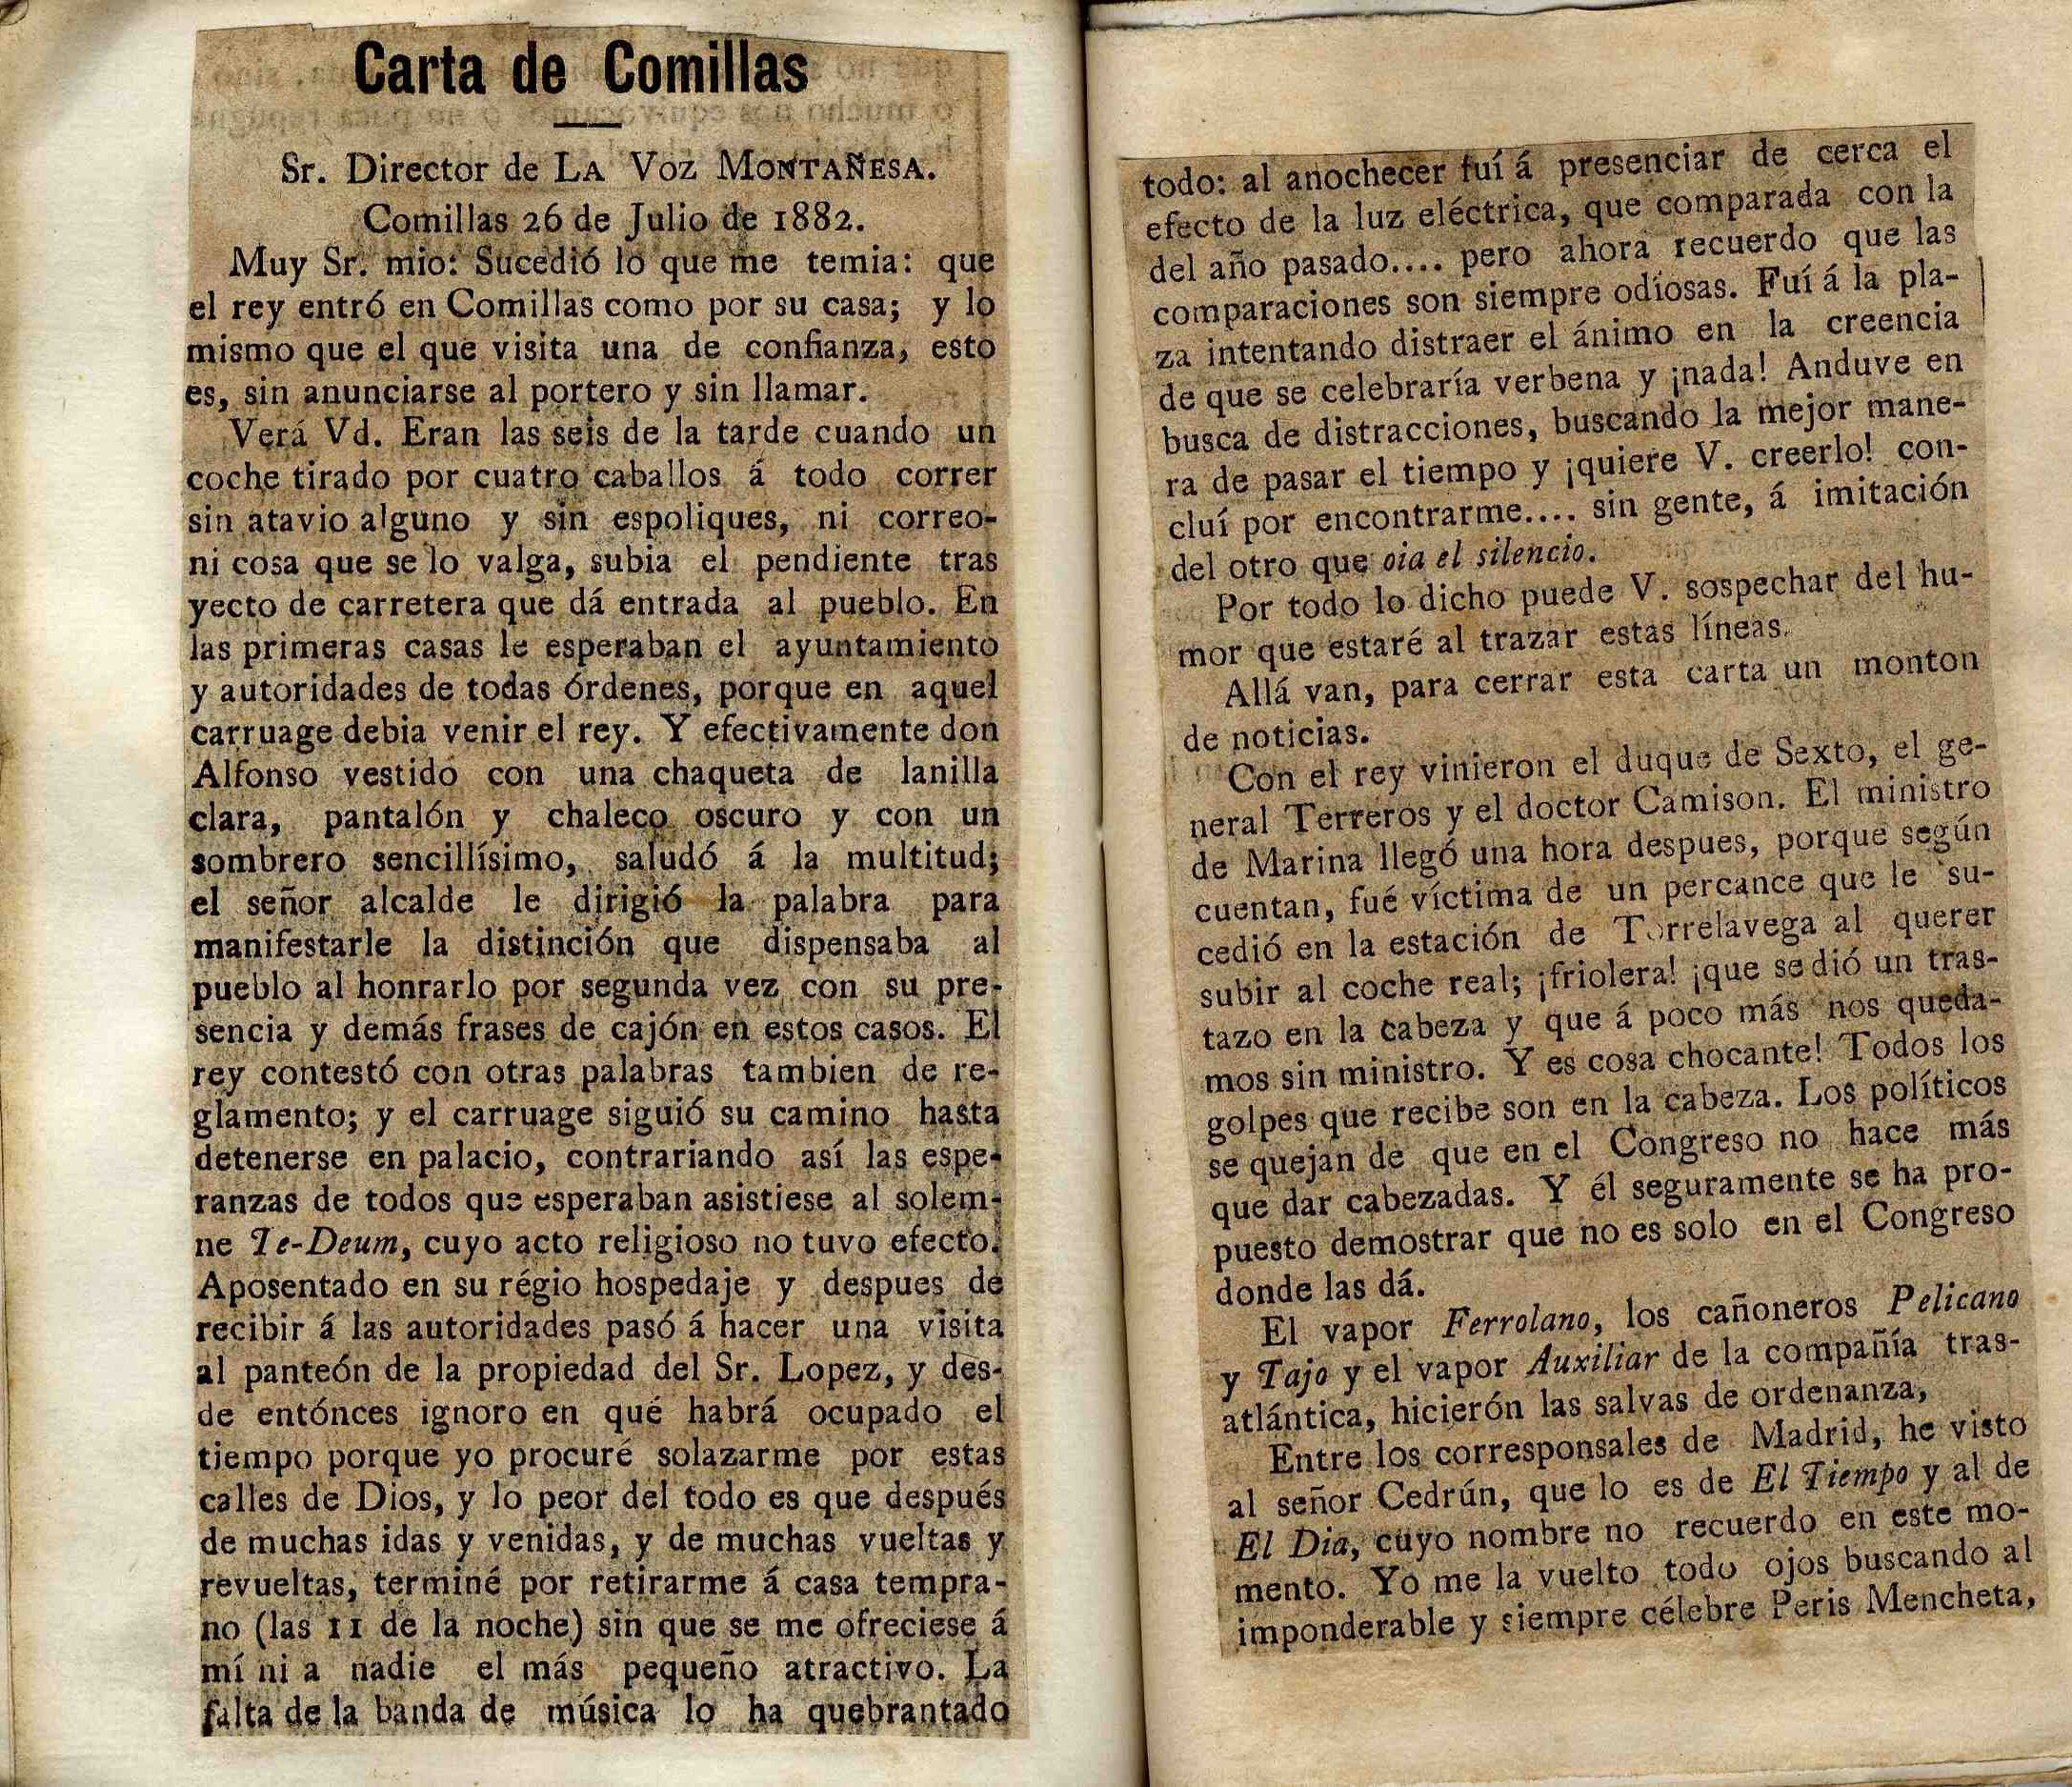 Carta de Comillas
Sr. Director de LA VOZ MONTAÑESA.
Comillas 26 de Julio de 1882.
Muy Sr. mio: Sucedió lo que me temia: que
el rey entró en Comillas como por su casa; y lo
mismo que el que visita una de confianza, esto
es, sin anunciarse al portero y sin llamar.
Verá Vd. Eran las seis de la tarde cuando un
coche tirado por cuatro caballos á todo correr
sin atavio alguno y sin espoliques, ni correo-
ni cosa que se lo valga, subia el pendiente tras
yecto de carretera que dá entrada al pueblo. En
las primeras casas le esperaban el ayuntamiento
y autoridades de todas órdenes, porque en aquel
carruage debia venir el rey. Y efectivamente don
Alfonso vestido con una chaqueta de lanilla
clara, pantalón y chaleco oscuro y con un
sombrero sencillísimo, saludó á la multitud;
el señor alcalde le dirigió la palabra para
manifestarle la distinción que dispensaba al
pueblo al honrarlo por segunda vez con su pre-
sencia y demás frases de cajón en estos casos. El
rey contestó con otras palabras tambien de re-
glamento; y el carruage siguió su camino hasta
detenerse en palacio, contrariando así las espe-
ranzas de todos que esperaban asistiese al solem-
ne Te-Deum, cuyo acto religioso no tuvo efecto.
Aposentado en su régio hospedaje y despues de
recibir á las autoridades pasó á hacer una visita
al panteón de la propiedad del Sr. Lopez, y des-
de entónces ignoro en qué habrá ocupado el
tiempo porque yo procuré solazarme por estas
calles de Dios, y lo peor del todo es que después
de muchas idas y venidas, y de muchas vueltas y
revueltas, terminé por retirarme á casa tempra-
no (las 11 de la noche) sin que se me ofreciese á
mí ni a nadie el más pequeño atractivo. La
falta de la banda de música lo ha quebrantado
todo: al anochecer fuí á presenciar de cerca el
efecto de la luz eléctrica, que comparada con la
del año pasado.... pero ahora recuerdo que las
comparaciones son siempre odiosas. Fuí á la pla-
za intentando distraer el ánimo en la creencia
de que se celebraría verbena y ¡nada! Anduve en
busca de distracciones, buscando la mejor mane-
ra de pasar el tiempo y ¡quiere V. creerlo! con-
cluí por encontrarme.... sin gente, á imitación
del otro que oia el silencio.
Por todo lo dicho puede V. sospechar del hu-
mor que estaré al trazar estas líneas.
Allá van, para cerrar esta carta un monton
de noticias.
Con el rey vinieron el duque de Sexto, el ge-
neral Terreros y el doctor Camison. El ministro
de Marina llegó una hora despues, porque según
cuentan, fué víctima de un percance que le su-
cedió en la estación de Torrelavega al querer
subir al coche real; ¡friolera! ¡que se dió un tras-
tazo en la cabeza y que á poco más nos queda-
mos sin ministro. Y es cosa chocante! Todos los
golpes que recibe son en la cabeza. Los políticos
se quejan de que en el Congreso no hace más
que dar cabezadas. Y él seguramente se ha pro-
puesto demostrar que no es solo en el Congreso
donde las dá.
El vapor Ferrolano, los cañoneros Pelicano
y Tajo y el vapor Auxiliar de la compañía tras-
atlántica, hicierón las salvas de ordenanza,
Entre los corresponsales de Madrid, he visto
al señor Cedrún, que lo es de El Tiempo y al de
El Dia, cuyo nombre no recuerdo en este mo-
mento. Yo me la vuelto todo ojos buscando al
imponderable y siempre célebre Peris Mencheta,